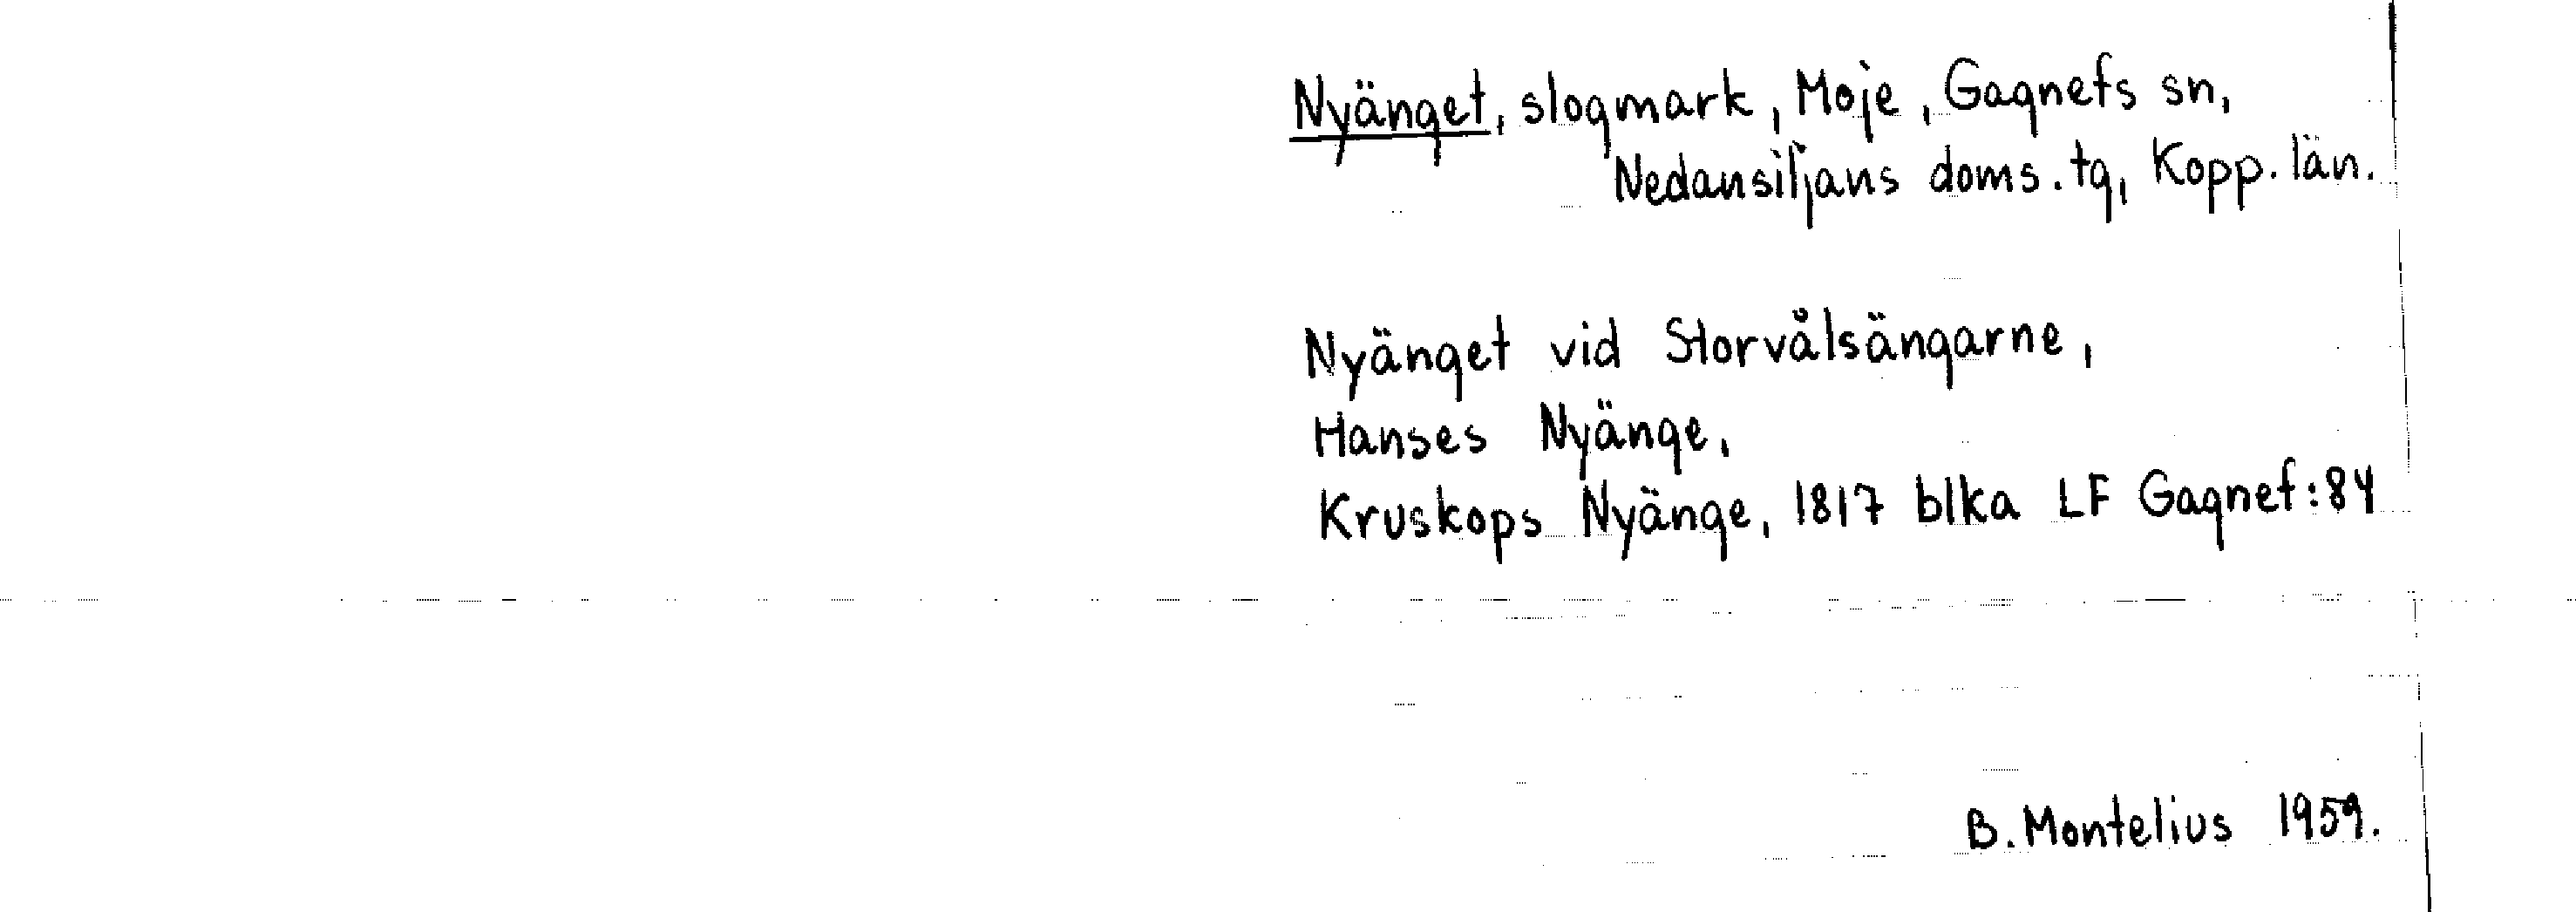 Nyänget, slogmark, Moje, Gagnefs sn,
Nedansiljans doms. tg, Kopp. län.
Nyänget vid Storvålsängarne,
Hanses Nyänge,
Kruskops Nyänge, 1817 blka LF Gagnef:84
B. Montelius 1959.